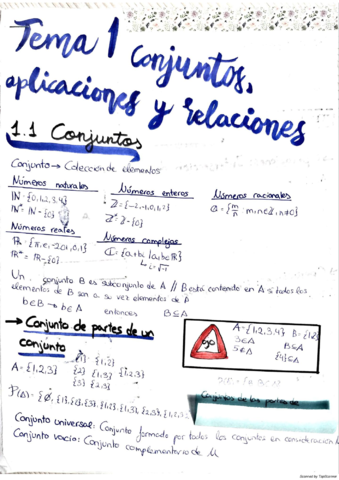 Tema 1 Conjuntos,
aplicaciones y relaciones
1.1 Conjuntos
Conjunto → Colección de elementos
Números naturales
ℕ = {0,1,2,3,4}
ℕ* = ℕ - {0}
Números enteros
ℤ = {-2,-1,0,1,2}
ℤ* = ℤ - {0}
Números racionales
ℚ = {m/n m,n∈ℤ, n≠0}
Números reales
ℝ = {π, e, -20, 1, 0, 1}
ℝ* = ℝ - {0}
Números complejos
ℂ = {a+bi | a,b∈ℝ}
i = √-1
Un conjunto B es subconjunto de A // B está contenido en A si todos los
elementos de B son a su vez elementos de A
b∈B → b∈A entonces B⊆A
→ Conjunto de partes de un
conjunto
A = {1,2,3}
{1} {1,2}
{2} {1,3} {1,2,3}
{3} {2,3}
ojo
A = {1,2,3,4} B = {1,2}
3∈A B⊆A
5∉A {4}⊆A
P(A) = {∅, {1}, {2}, {3}, {1,2}, {1,3}, {2,3}, {1,2,3
Conjuntos de las partes de
Conjunto universal: Conjunto formado por todos los conjuntos en consideración
Conjunto vacío: Conjunto complementario de U
Scanned by TapScanner